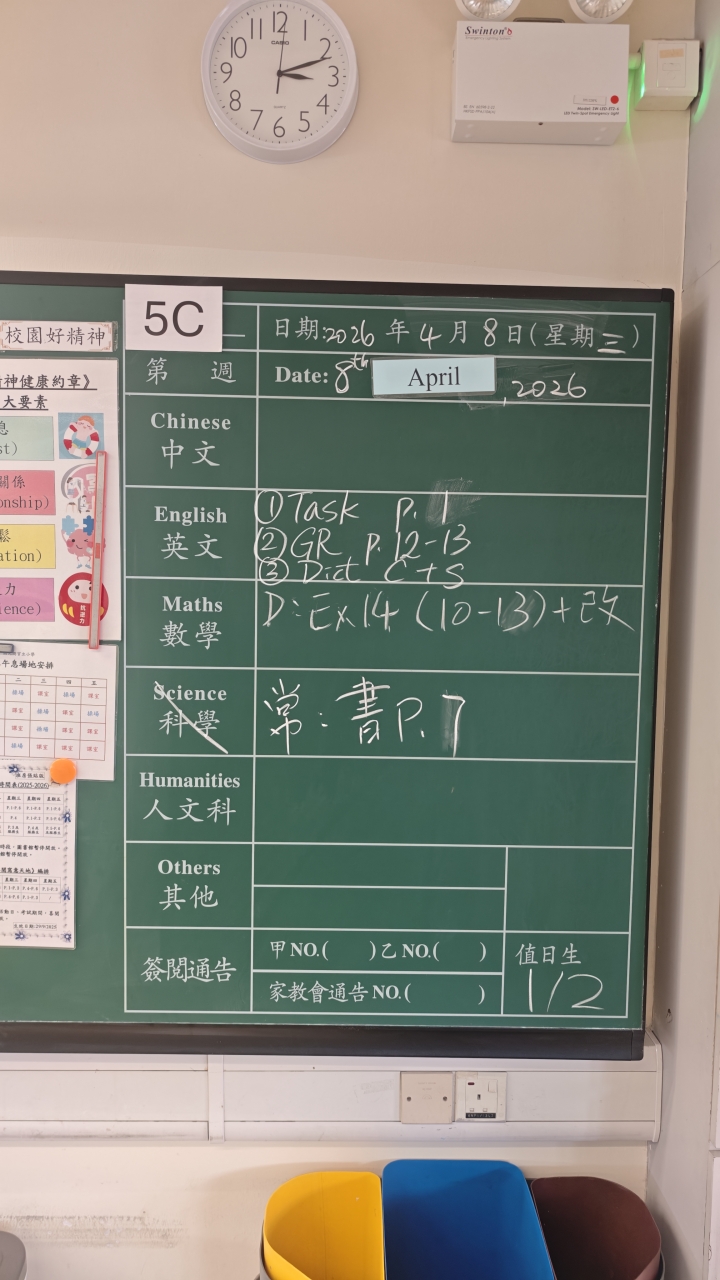 12
1
2
3
4
5
6
7
8
9
10
11
CASIO
QUARTZ
Swinton
Emergency Lighting Series
5C
日期:2026年4月8日(星期三)
第 週
Date: 8th April, 2026
Chinese
中文
English
英文
① Task p. 1
② GR p. 12-13
③ Dict C+S
Maths
數學
D: Ex14 (10-13)+改
Science
科學
常:書P.7
Humanities
人文科
Others
其他
簽閱通告
甲 NO.( )乙 NO.( )
家教會通告 NO.( )
值日生
1/2
校園好精神
神健康約章》
大要素
息
st)
關係
onship)
鬆
ation)
力
ience)
午息場地安排
二 三 四 五